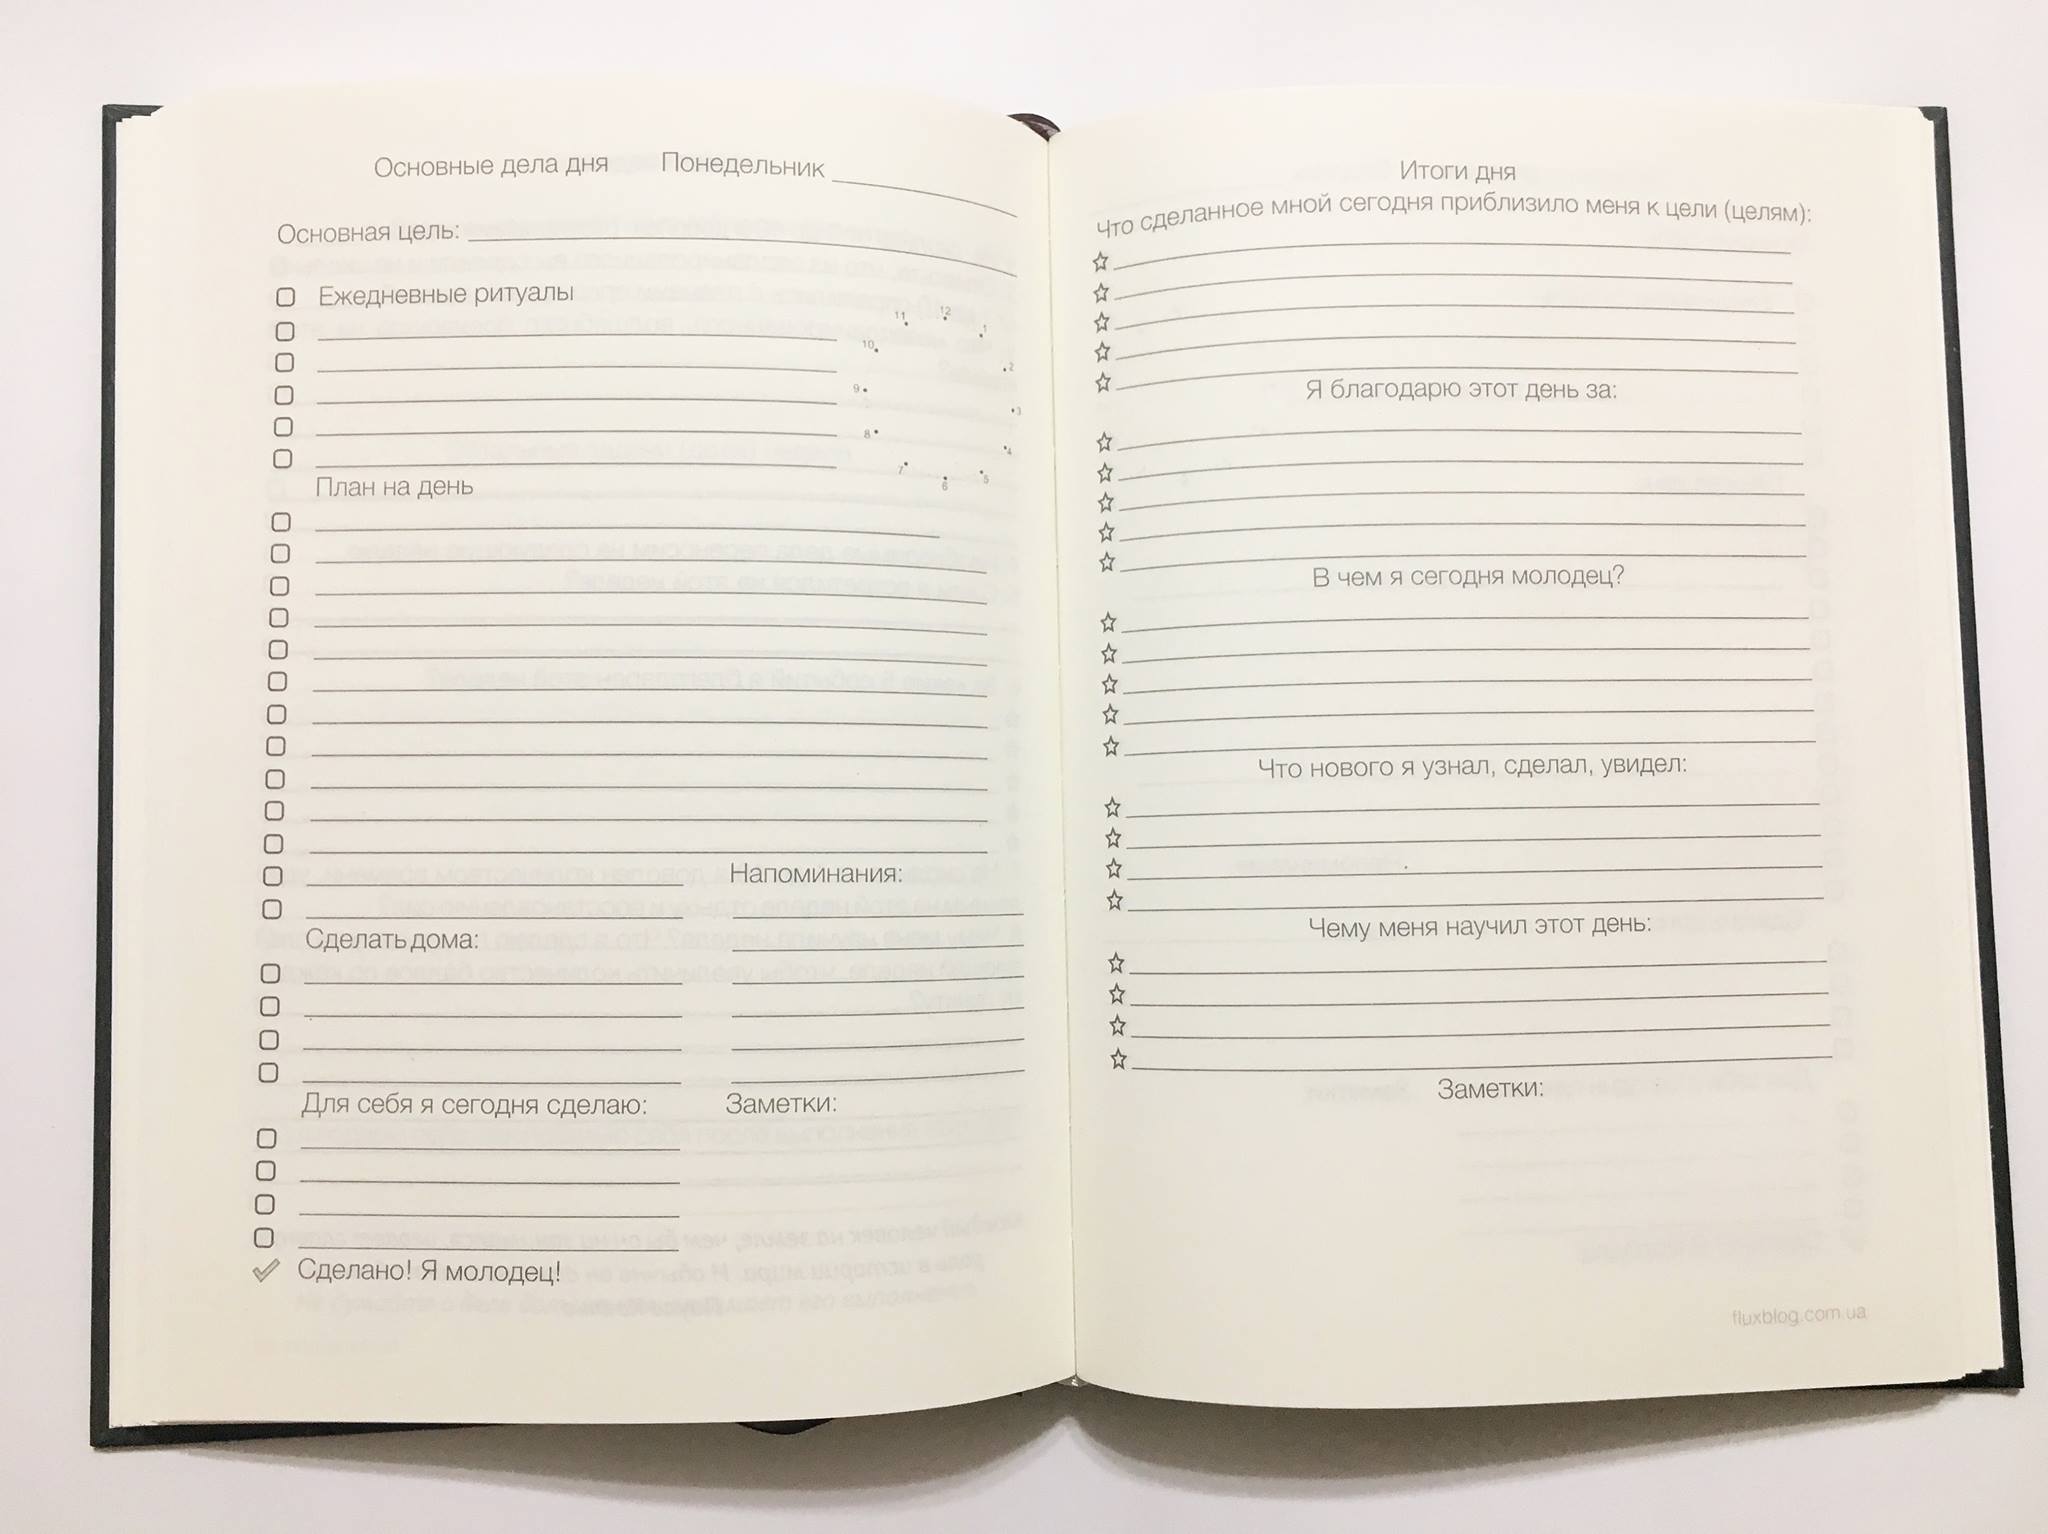 Основные дела дня Понедельник
Основная цель:
Ежедневные ритуалы
11 12 1
10 2
9 3
8 4
7 6 5
План на день
Напоминания:
Сделать дома:
Для себя я сегодня сделаю: Заметки:
Сделано! Я молодец!
Итоги дня
Что сделанное мной сегодня приблизило меня к цели (целям):
Я благодарю этот день за:
В чем я сегодня молодец?
Что нового я узнал, сделал, увидел:
Чему меня научил этот день:
Заметки:
fluxblog.com.ua